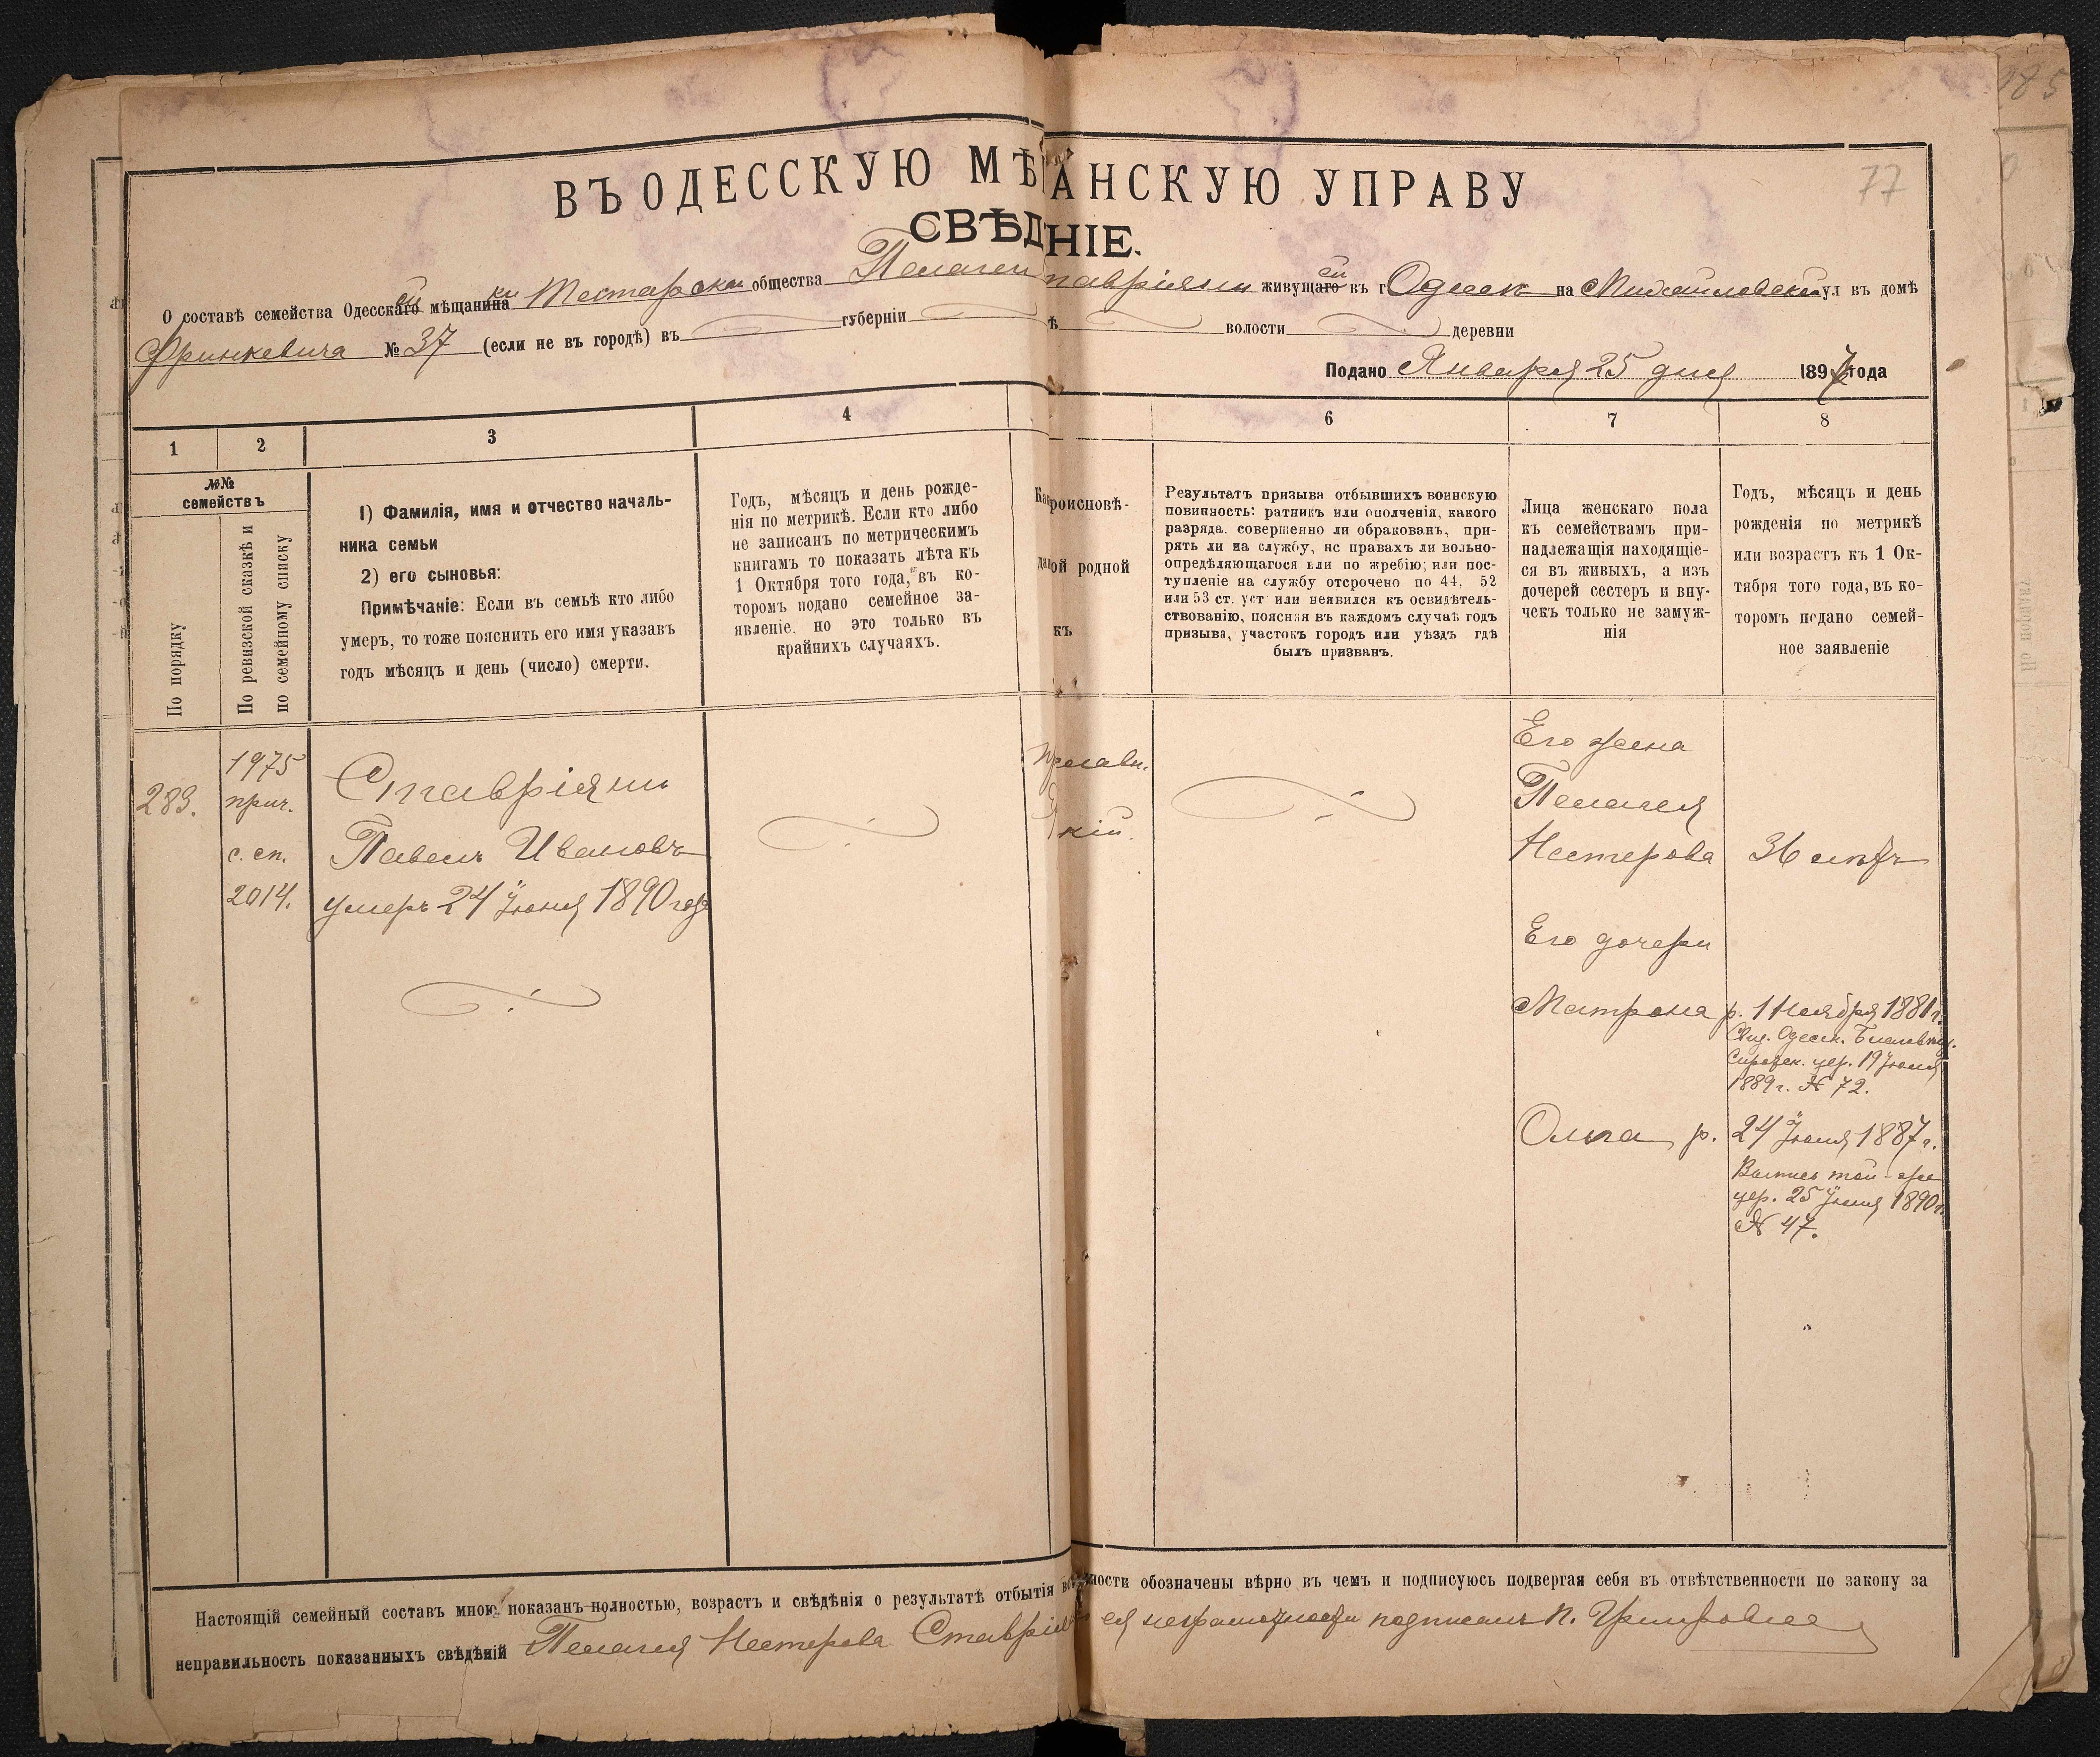 77
ВЪ ОДЕССКУЮ МѢ АНСКУЮ УПРАВУ
СВѢД НІЕ.
О составѣ семейства Одесскаго мѣщанина общества Пелагеи тавріяни живущаго ей въ г Одессѣ на Михайловской ул въ домѣ
№ 37 (если не въ городѣ) въ губерніи ѣ волости деревни
Подано Января 25 дня 1897 года
1 2 3 4 6 7 8
№№ семействъ
По порядку
По ревизской сказкѣ и по семейному списку
1) Фамилія, имя и отчество началь-
ника семьи
2) его сыновья:
Примѣчаніе: Если въ семьѣ кто либо
умеръ, то тоже пояснить его имя указавъ
годъ мѣсяцъ и день (число) смерти.
Годъ, мѣсяцъ и день рожде-
нія по метрикѣ. Если кто либо
не записанъ по метрическимъ
книгамъ то показать лѣта къ
1 Октября того года, въ ко-
торомъ подано семейное за-
явленіе. но это только въ
крайнихъ случаяхъ.
роисповѣ-
ой родной
къ
Результатъ призыва отбывшихъ воинскую
повинность: ратникъ или ополченія, какого
разряда. совершенно ли обракованъ, при-
рять ли на службу, нс правахъ ли вольно-
опредѣляющагося или по жребію; или пос-
тупленіе на службу отсрочено по 44, 52
или 53 ст. уст или неявился къ освидѣтель-
ствованію, поясняя въ каждомъ случаѣ годъ
призыва, участокъ городъ или уѣздъ гдѣ
былъ призванъ.
Лица женскаго пола
къ семействамъ при-
надлежащія находящіе-
ся въ живыхъ, а изъ
дочерей сестеръ и вну-
чекъ только не замуж-
нія
Годъ, мѣсяцъ и день
рожденія по метрикѣ
или возрастъ къ 1 Ок-
тября того года, въ ко-
торомъ подано семей-
ное заявленіе
283.
1975
прич.
с. сп.
2014.
Ставріянъ
Павелъ Ивановъ
умеръ 24 Іюня 1890 года
Его жена
Пелагея
Нестерова 36 лѣтъ
Его дочери
Матрона р. 1 Ноября 1881 г.
Свид. Одесск.
цер. 19 Іюня
1889 г. № 72.
Ольга р. 24 Іюня 1887 г.
той-же
цер. 25 Іюня 1890 г.
№ 47.
Настоящій семейный составъ мною показанъ полностью, возрастъ и свѣдѣнія о результатѣ отбытія ности обозначены вѣрно въ чемъ и подписуюсь подвергая себя въ отвѣтственности по закону за
неправильность показанныхъ свѣдѣній Пелагея Нестерова Ставрія ея неграмотности подписалъ П.